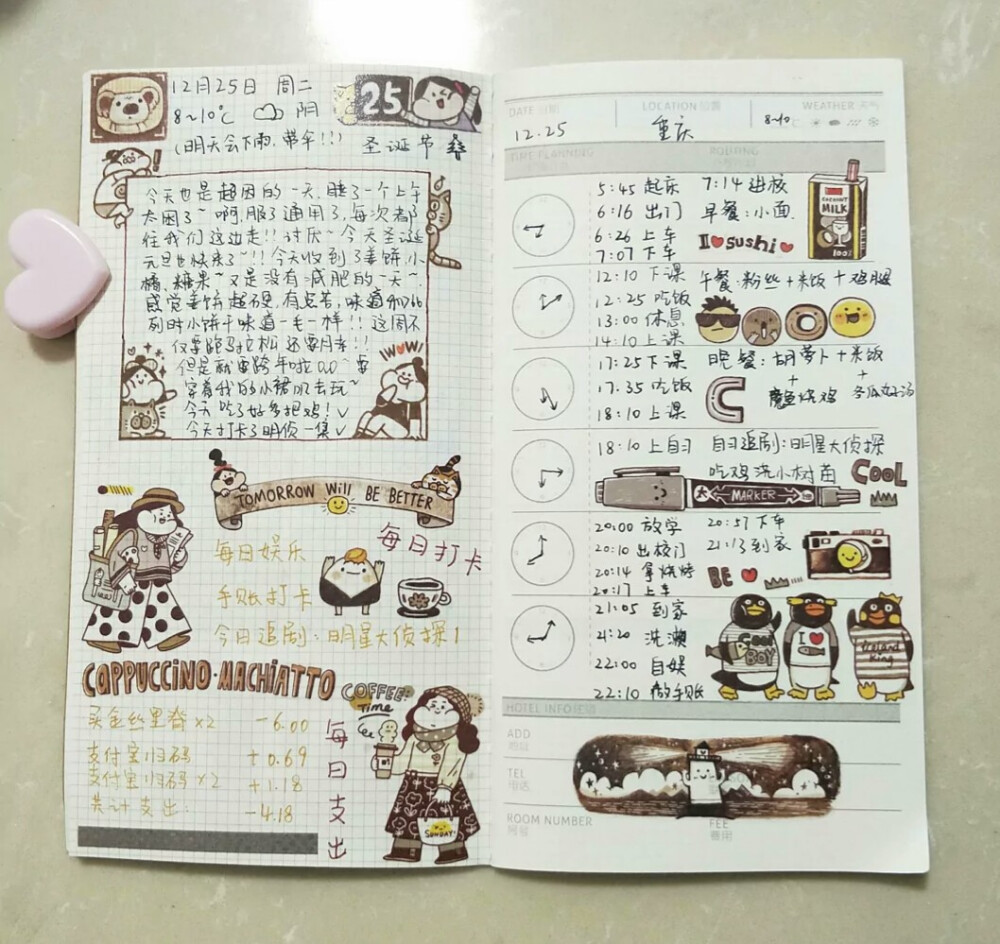 12月25日 周二
25
8~10℃ 阴
(明天会下雨,带伞!!)
圣诞节
今天也是超困的一天,睡了一个上午
太困了~啊,服了通用了,每次都
往我们这边走!!讨厌~今天圣诞
元旦也快来了~!!今天收到了姜饼,小
橘,糖果~又是没有减肥的一天~
感觉姜饼超硬,有点苦,味道和766
列时小饼干味道一毛一样!!这周不
仅要跑马拉松还要月考!!
但是就要跨年啦0.0~要
穿着我的小裙叽去玩~
今天吃了好多把鸡!✓
今天打卡了明侦一集✓
WOW
TOMORROW Will BE BETTER
每日打卡
每日娱乐
手账打卡
今日追剧:明星大侦探1
CAPPUCCINO·MACHIATTO
COFFEE
Time
买金丝里脊×2 -6.00
支付宝归码 +0.69
支付宝归码×2 +1.18
共计支出: -4.18
每日支出
SUNDAY
DATE 日期 LOCATION 位置 WEATHER 天气
12.25 重庆 8~10℃
TIME PLANNING ROUTING
5:45 起床 7:14 进校
6:16 出门 早餐:小面
6:26 上车
7:07 下车
I sushi
COCONUT
MILK
100%
12:10 下课 午餐:粉丝+米饭+鸡腿
12:25 吃饭
13:00 休息
14:10 上课
17:25 下课 晚餐:胡萝卜+米饭
17:35 吃饭 + +
魔鱼烧鸡 冬瓜丸子汤
18:10 上课
18:10 上自习 自习追剧:明星大侦探
吃鸡浇小树苗
COOL
MARKER
20:00 放学 20:57 下车
20:10 出校门 21:13 到家
20:14 拿烧烤
20:17 上车
BE
21:05 到家
21:20 洗漱
22:00 自娱
22:10 做手账
COOL
BOY
I
Iceland
King
HOTEL INFO
ADD
地址
TEL
电话
ROOM NUMBER
房号
FEE
费用